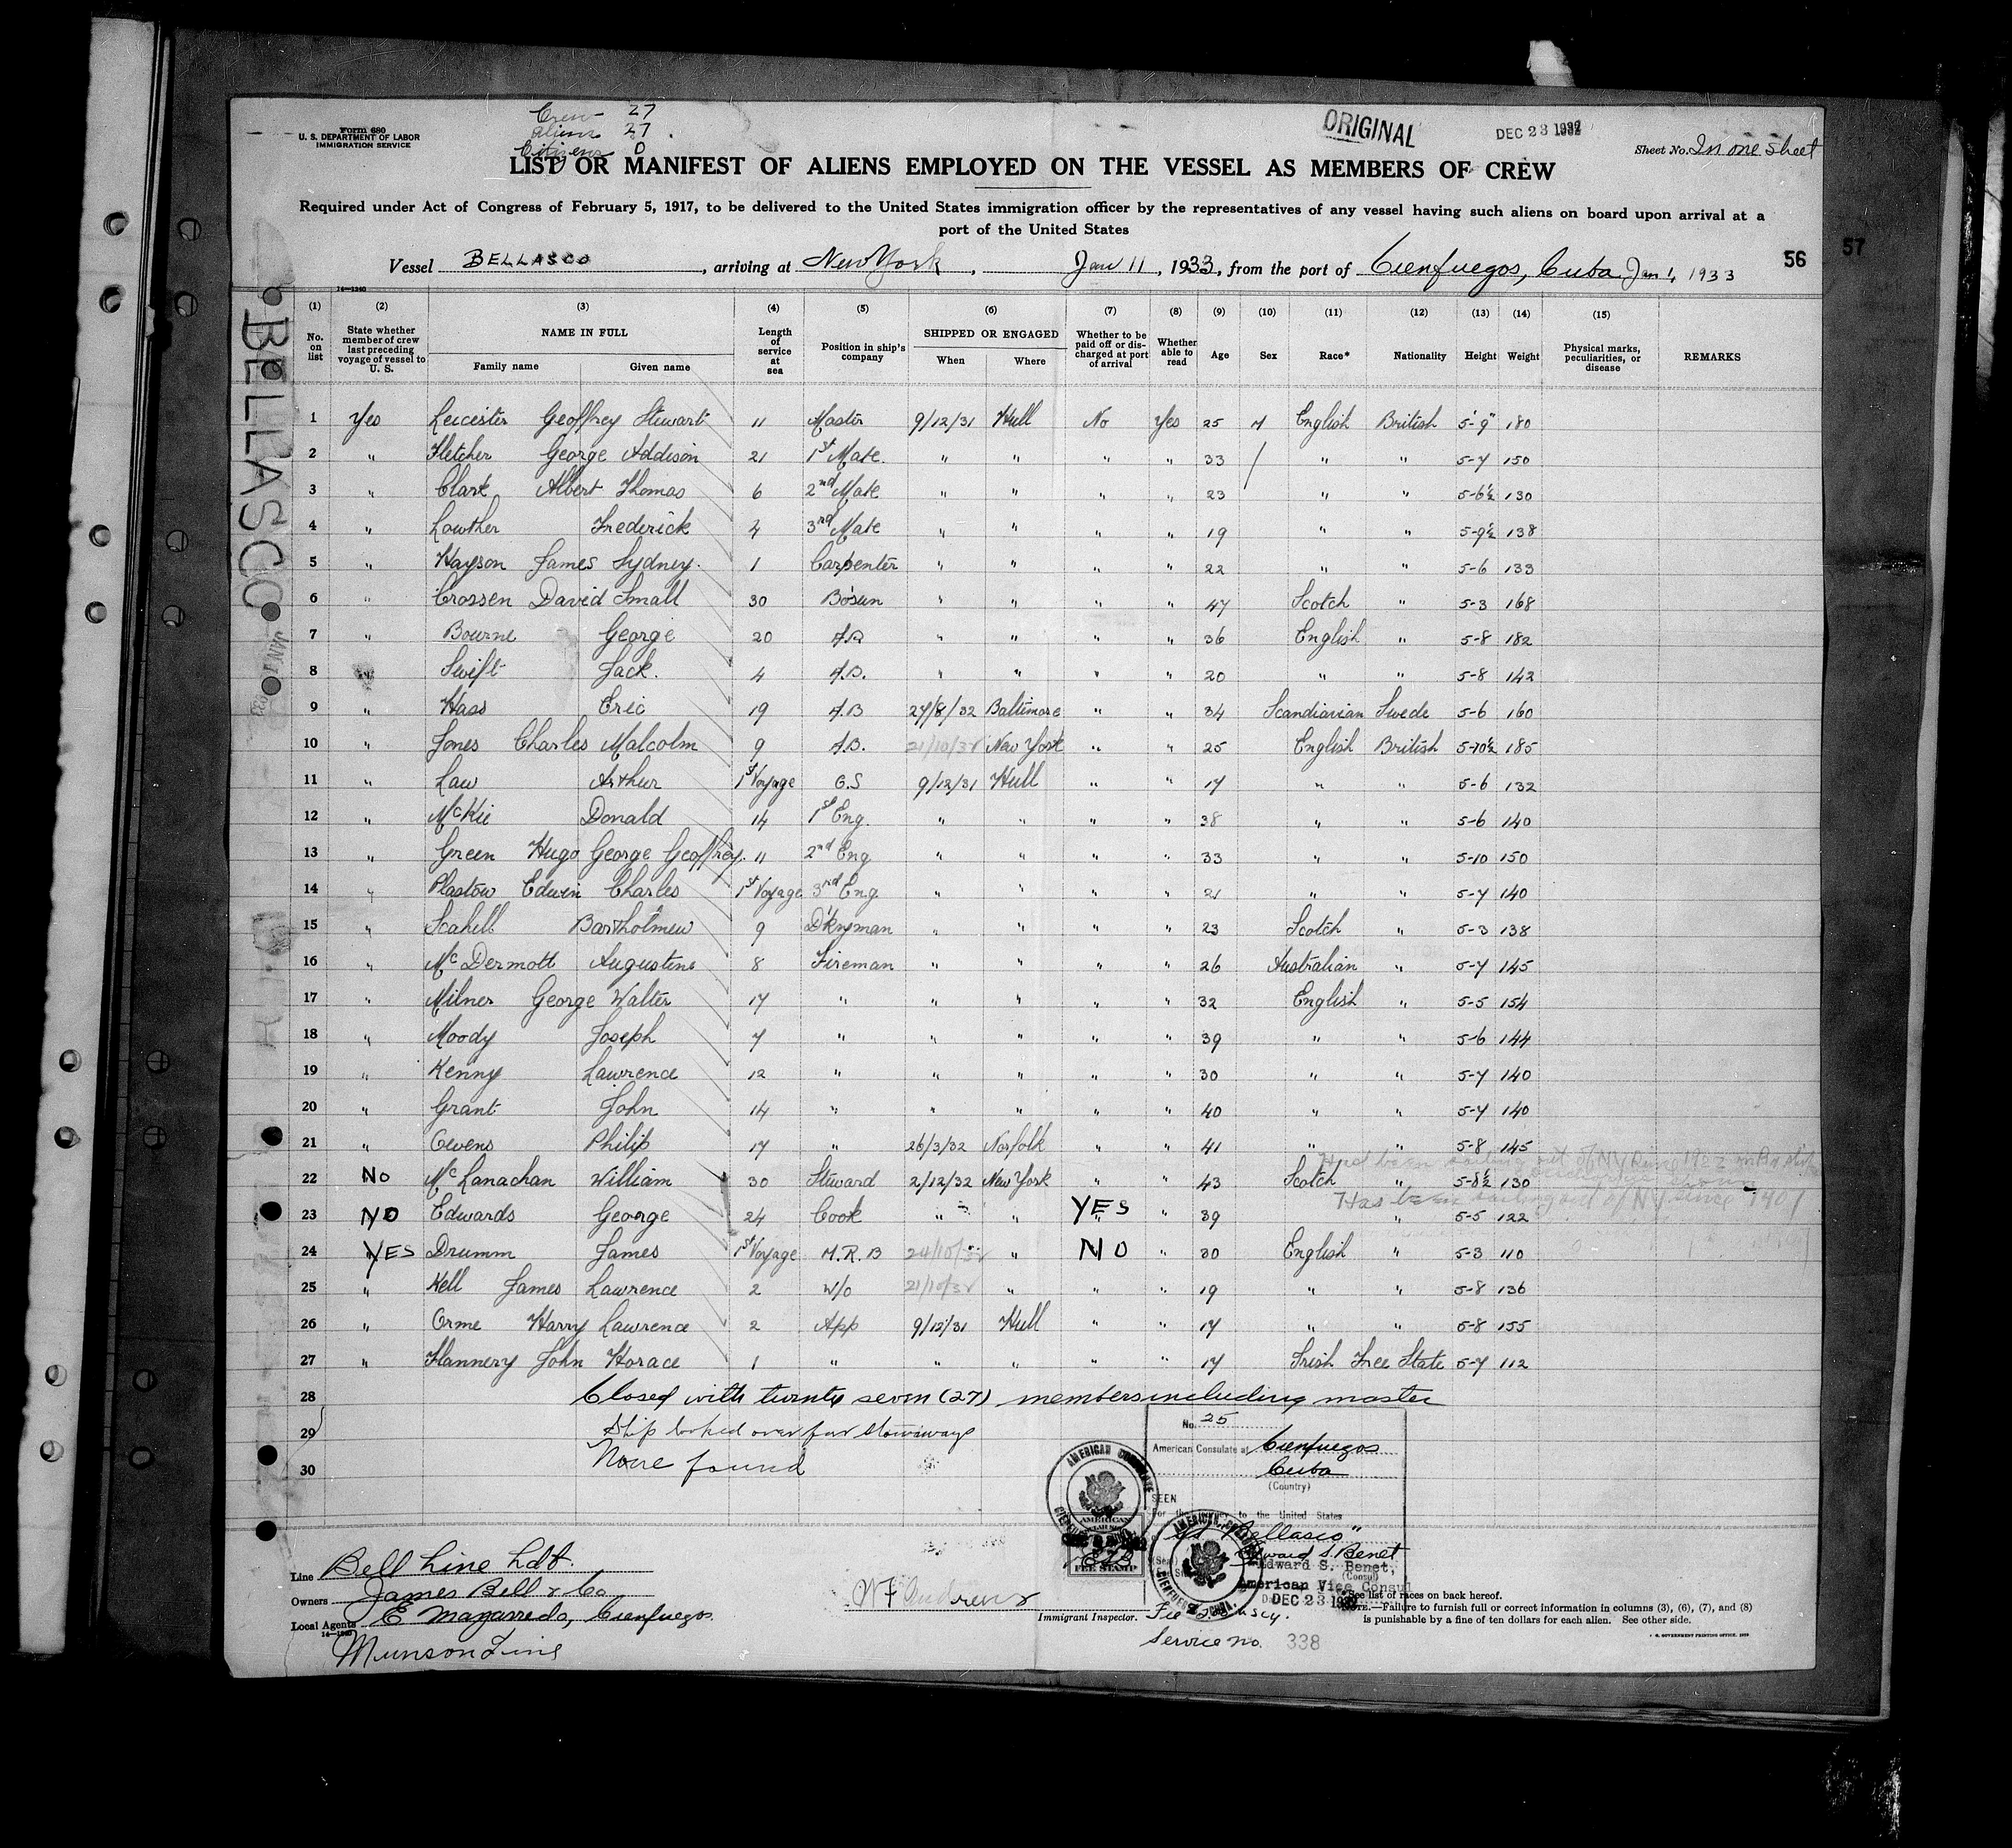 Form 680
U. S. DEPARTMENT OF LABOR
IMMIGRATION SERVICE
Crew 27
Aliens 27
Citizens 0
ORIGINAL
DEC 23 1932
Sheet No. In one sheet
LIST OR MANIFEST OF ALIENS EMPLOYED ON THE VESSEL AS MEMBERS OF CREW
Required under Act of Congress of February 5, 1917, to be delivered to the United States immigration officer by the representatives of any vessel having such aliens on board upon arrival at a
port of the United States
Vessel BELLASCO, arriving at New York, Jan 11, 1933, from the port of Cienfuegos, Cuba Jan 1, 1933
56
57
BELLASCO
14—1240
(1) (2) (3) (4) (5) (6) (7) (8) (9) (10) (11) (12) (13) (14) (15)
No. on list State whether member of crew last preceding voyage of vessel to U. S. NAME IN FULL Family name Given name Length of service at sea Position in ship's company SHIPPED OR ENGAGED When Where Whether to be paid off or discharged at port of arrival Whether able to read Age Sex Race* Nationality Height Weight Physical marks, peculiarities, or disease REMARKS
1 Yes Leicester Geoffrey Stewart 11 Master 9/12/31 Hull No Yes 25 M English British 5'-9" 180
2 " Fletcher George Addison 21 1st Mate. " " " " 33 " " 5-7 150
3 " Clark Albert Thomas 6 2nd Mate " " " " 23 " " 5-6½ 130
4 " Lowther Frederick 4 3rd Mate " " " " 19 " " 5-9½ 138
5 " Hayson James Sydney. 1 Carpenter " " " " 22 " " 5-6 133
6 " Crossen David Small 30 Bo'sun " " " " 47 Scotch " 5-3 168
7 " Bourne George 20 A.B " " " " 36 English " 5-8 182
8 " Swift Jack. 4 A.B. " " " " 20 " " 5-8 142
9 " Hass Eric 19 A.B 27/8/32 Baltimore " " 34 Scandiavian Swede 5-6 160
10 " Jones Charles Malcolm 9 A.B. 21/10/32 New York " " 25 English British 5-10½ 185
11 " Law Arthur 1st Voyage O.S 9/12/31 Hull " " 17 " " 5-6 132
12 " McKie Donald 14 1st Eng. " " " " 38 " " 5-6 140
13 " Green Hugo George Geoffrey. 11 2nd Eng " " " " 33 " " 5-10 150
14 " Plastow Edwin Charles 1st Voyage 3rd Eng. " " " " 21 " " 5-7 140
15 " Scahill Bartholmew 9 D'kyman " " " " 23 Scotch " 5-3 138
16 " McDermott Augustine 8 Fireman " " " " 26 Australian " 5-7 145
17 " Milner George Walter 17 " " " " " 32 English " 5-5 154
18 " Moody Joseph 7 " " " " " 39 " " 5-6 144
19 " Kenny Lawrence 12 " " " " " 30 " " 5-7 140
20 " Grant John 14 " " " " " 40 " " 5-7 140
21 " Owens Philip 17 " 26/3/32 Norfolk " " 41 " " 5-8 145
22 No McLanachan William 30 Steward 2/12/32 New York " " 43 Scotch " 5-8½ 130
Has been sailing out of NY since 1901
23 NO Edwards George 24 Cook " " YES " 39 " 5-5 122
24 YES Drumm James 1st Voyage M.R.B 24/10/32 " NO " 30 English " 5-3 110
25 " Kell James Lawrence 2 W/O 21/10/32 " " " 19 " " 5-8 136
26 " Orme Harry Lawrence 2 App 9/12/31 Hull " " 17 " " 5-8 155
27 " Flannery John Horace 1 " " " " " 17 Irish Free State 5-7 112
28 Closed with twenty seven (27) members including master
29 Ship looked over for stowaways
30 None found
No. 25
American Consulate at Cienfuegos
Cuba
(Country)
SEEN
For the to the United States
"Bellasco"
Edward S. Benet
Edward S. Benet,
(Consul)
American Vice Consul
DEC 23 1932
AMERICAN CONSULATE
CIENFUEGOS, CUBA
AMERICAN
FEE STAMP
Service no. 338
Line Bell Line Ldt.
Owners James Bell & Co
Local Agents E Mazarredo, Cienfuegos.
14—1240
Munson Line
W F Andrews
Immigrant Inspector.
*See list of races on back hereof.
NOTE.—Failure to furnish full or correct information in columns (3), (6), (7), and (8)
is punishable by a fine of ten dollars for each alien. See other side.